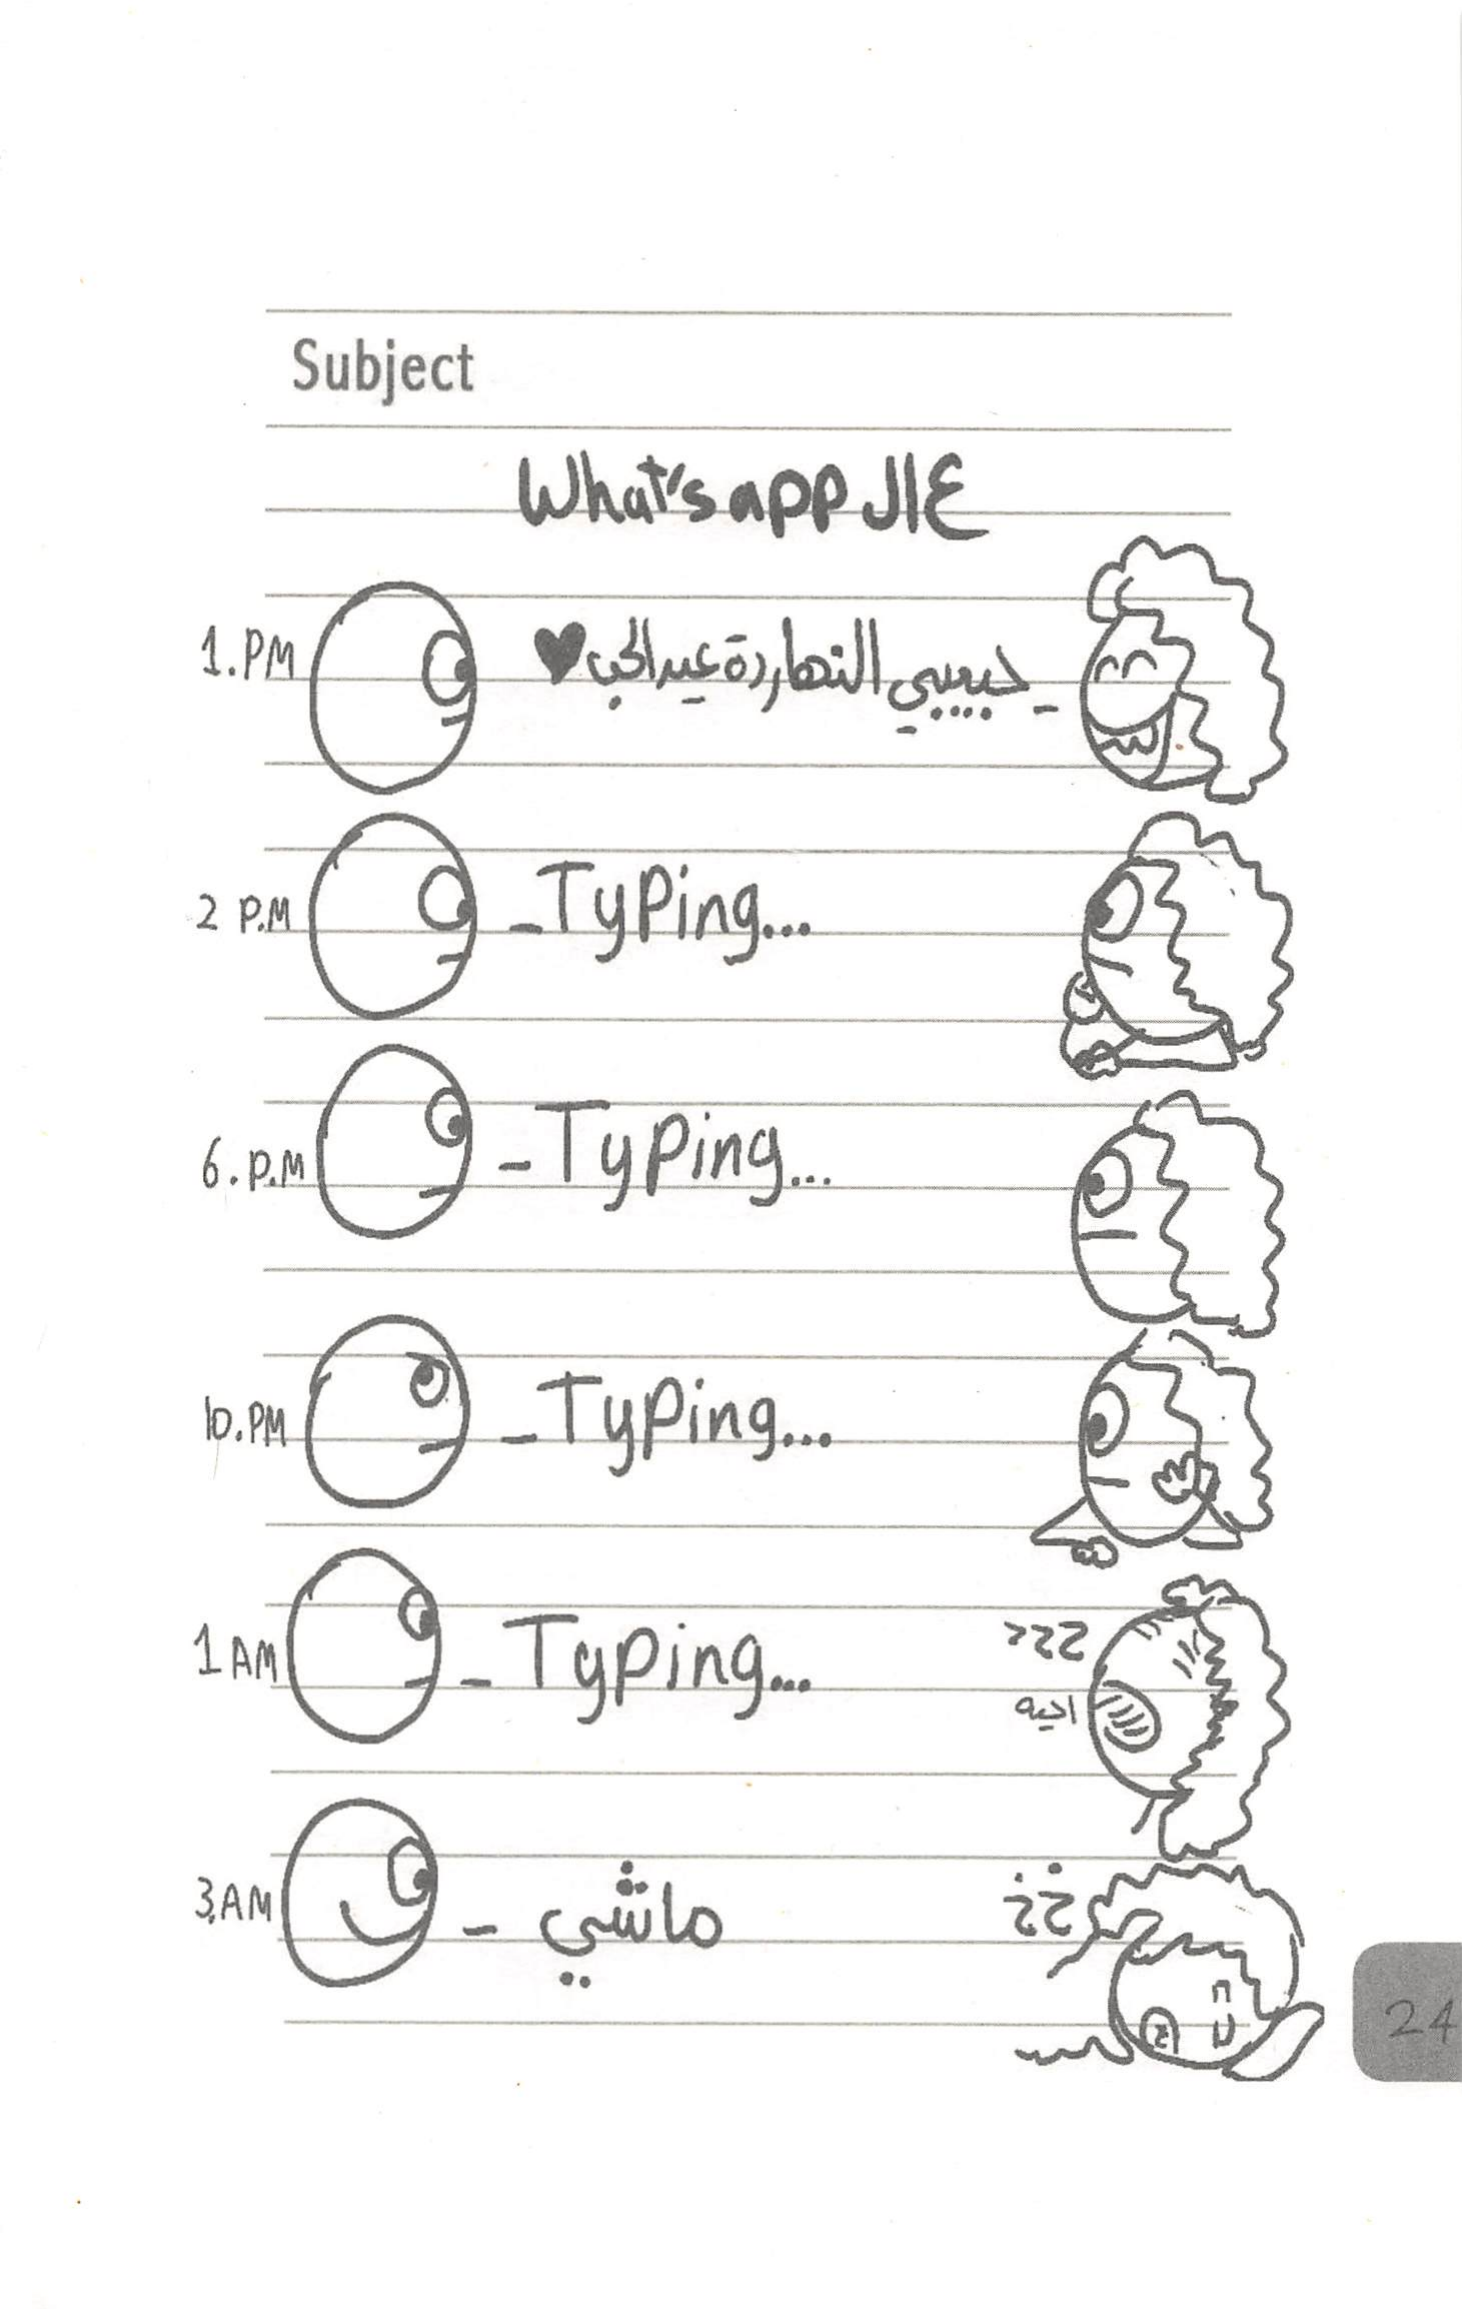 Subject
ع ال What's app
1.PM
- حبيبي النهاردة عيد الحب ♥
2 P.M
- Typing...
6.P.M
- Typing...
10.PM
- Typing...
1 AM
- Typing...
احيه
3.AM
- ماشي
24